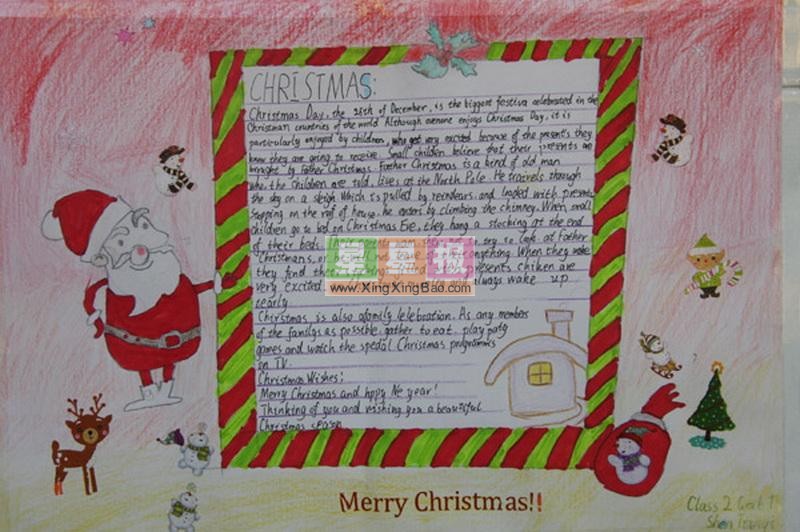 CHRISTMAS:
Christmas Day, the 25th of December, is the biggest festiva celebrated in the
Christman countries of the world Although enjoys Christmas Day, it is
particularly enjoyed by children, who get very excited because of the presents they
know they are going to receive. Small children believe that their presents are
brought by Father Christmas. Father Christmas is a kind of old man
who, the children are told, lives at the North Pole. He through
the sky on a sleigh which is pulled by reindeers and loaded with
Stopping on the roof of house, he enters by climbing the chimney. When small
Children go to bed on Christmas Eve, they hang a stocking at the end
of their beds. try to look at Father
Christmas, or leave anything. When they wake
they find their presents are
very excited always wake up
early
星星报
www.XingXingBao.com
Christmas is also afamily lelebration. As any members
of the familys as possible gather to eat, play paty
games and watch the special Christmas
on TV.
Christmas Wishes;
Merry Christmas and hppy Ne year!
Thinking of you and wishing you a beautiful
Christmas season
Merry Christmas!!
Class 2 1
Shen